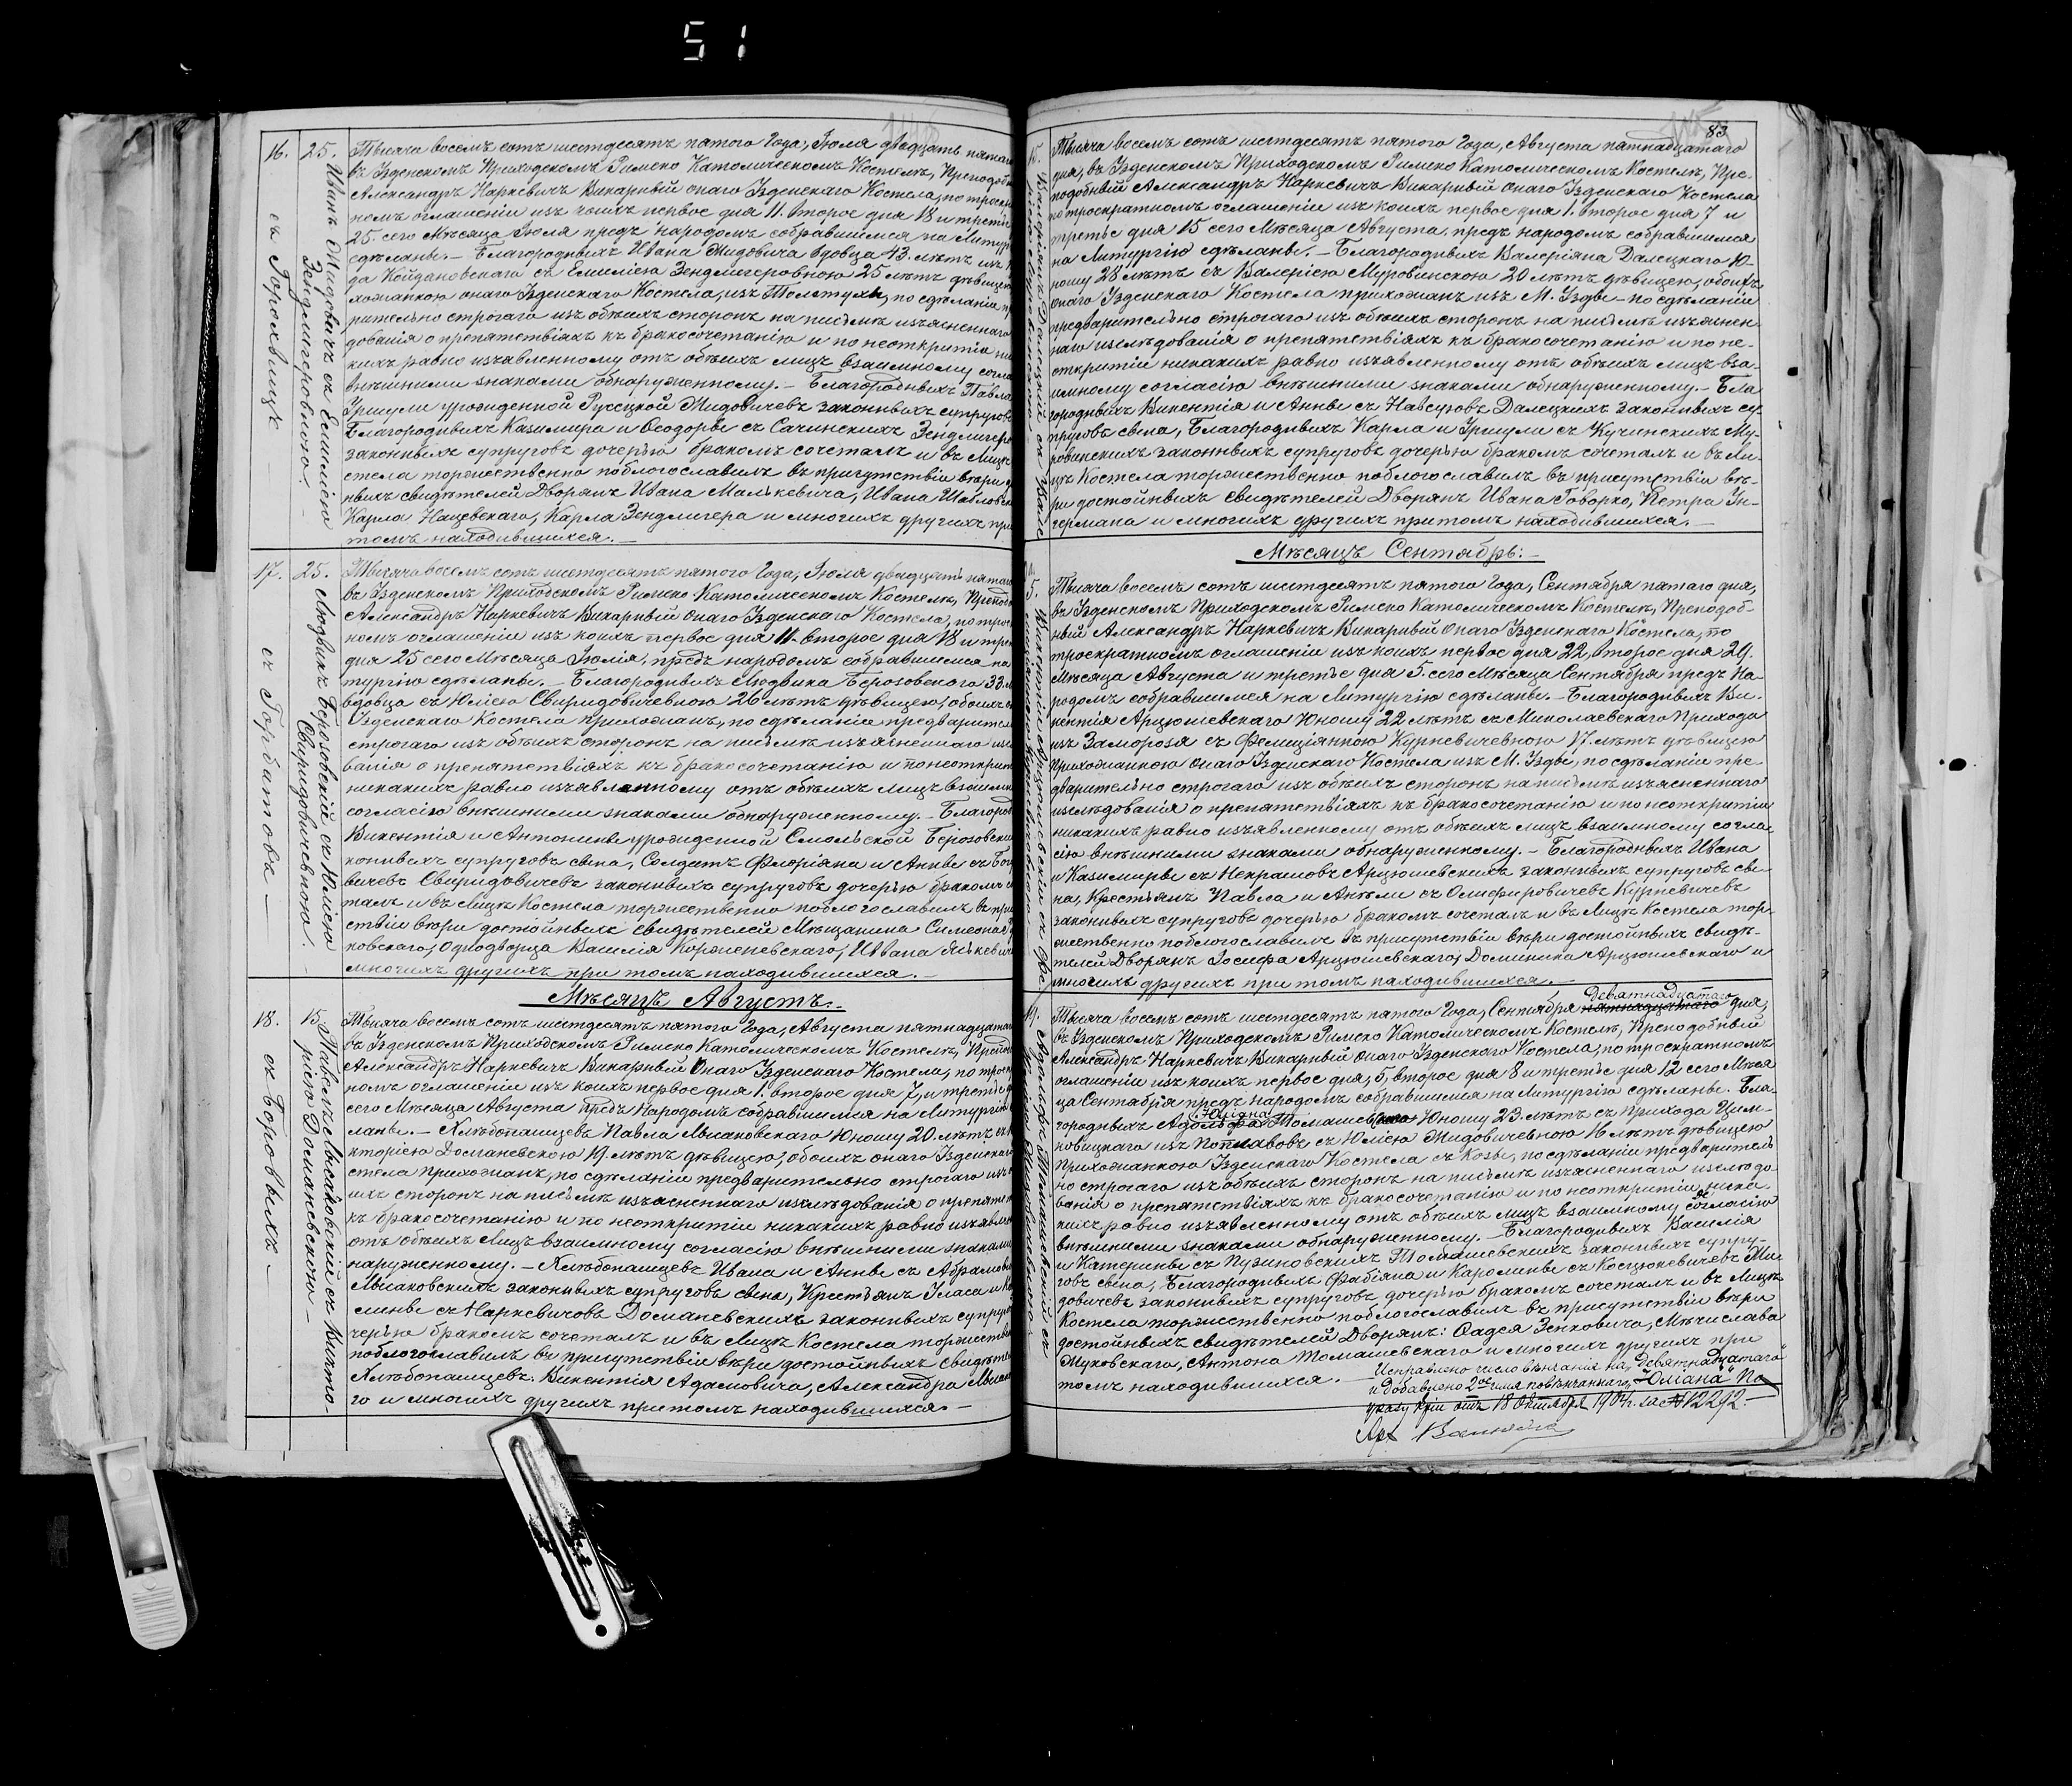 51
16.
25.
Иванъ Мидовичъ съ Емиліею
Зендлигеровною.—
съ Горохвищъ
Тысяча восемъ сотъ шестдесятъ пятого Года, Іюля двадцать пятаго
въ Узденскомъ Приходскомъ Римско Католическомъ Костелѣ, Преподобн
Александръ Наркевичъ Викарный онаго Узденскаго Костела, по троекр
номъ оглашеніи изъ коихъ первое дня 11. второе дня 18 и третіе
25. сего Мѣсяца Іюля предъ народомъ собравшимся на Литур
сдѣланы.— Благородныхъ Ивана Мидовича вдовца 43. лѣтъ изъ
да Койдановскаго съ Емиліею Зендлигеровною 25 лѣтъ дѣвицею
хожанкою онаго Узденскаго Костела, изъ по сдѣланіи п
рительно строгаго изъ обѣихъ сторонъ на письмѣ изъясненнаго
дованія о препятствіяхъ къ бракосочетанію и по неоткрытіи ни
кихъ равно изъявленному отъ обѣихъ лицъ взаимному согла
внѣшними знаками обнаруженному.— Благородныхъ Павла
Уршули урожденной Мидовичевъ законныхъ супруговъ
Благородныхъ Казимира и Ѳеодоры съ Сачинскихъ Зендлигеро
законныхъ супруговъ дочерью бракомъ сочеталъ и въ Лицѣ
стела торжественно поблогославилъ въ присутствіи вѣри д
ныхъ свидѣтелей Дворянъ Ивана Малькевича, Ивана
Карла Нацевскаго, Карла Зендлигера и многихъ другихъ при
томъ находившихся.—
17.
25.
Людвикъ Берозовскій съ Юліею
Свиридовичевною.
съ Горбатовка —
Тысяча восемъ сотъ шестдесятъ пятого Года, Іюля двадцать пятаго
въ Узденскомъ Приходскомъ Римско Католическомъ Костелѣ, Преподо
Александръ Наркевичъ Викарный онаго Узденскаго Костела, по трое
номъ оглашеніи изъ коихъ первое дня 11. второе дня 18 и тре
дня 25 сего Мѣсяца Іюлія, предъ народомъ собравшимся на
тургію сдѣланы.— Благородныхъ Людвика Берозовского 33.
вдовца съ Юліею Свиридовичевною 26 лѣтъ дѣвицею, обоихъ
Узденскаго Костела прихожанъ, по сдѣланіи предварител
строгаго изъ обѣихъ сторонъ на письмѣ изъясненнаго изс
ванія о препятствіяхъ къ бракосочетанію и по неоткрыт
никакихъ равно изъявленному отъ обѣихъ лицъ взаимн
согласію внѣшними знаками обнаруженному.— Благород
Викентія и Антонины урожденной Смольской Берозовски
конныхъ супруговъ сына, Солдатъ Флоріяна и Анны съ
вичевъ Свиридовичевъ законныхъ супруговъ дочерью бракомъ с
талъ и въ Лицѣ Костела торжественно поблогославилъ въ при
ствіи вѣри достойныхъ свидѣтелей Мѣщанина Симеона
ковскаго, Однодворца Василія Корженевскаго, Ивана
многихъ другихъ при томъ находившихся.—
Мѣсяцъ Августъ:—
18.
15.
Павелъ Мысайковскій съ Викто-
ріею Доманевскою —
съ Боровыхъ —
Тысяча восемъ сотъ шестдесятъ пятого Года, Августа пятнадцатаг
въ Узденскомъ Приходскомъ Римско Католическомъ Костелѣ, Препод
Александръ Наркевичъ Викарный Онаго Узденскаго Костела, по троек
номъ оглашеніи изъ коихъ первое дня 1. второе дня 7, и третіе
сего Мѣсяца Августа предъ Народомъ собравшимся на Литургію
ланы.— Хлѣбопашцевъ Павла Мысаковскаго Юношу 20. лѣтъ съ
кторіею Доманевскою 19. лѣтъ дѣвицею, обоихъ онаго Узденскаг
стела прихожанъ, по сдѣланіи предварительно строгаго изъ
ихъ сторонъ на письмѣ изъясненнаго изслѣдованія о препятст
къ бракосочетанію и по неоткрытіи никакихъ равно изъявле
отъ обѣихъ Лицъ взаимному согласію внѣшними знаками
наруженному.— Хлѣбопашцевъ Ивана и Анны съ
Мысаковскихъ законныхъ супруговъ сына, Крестьянъ
лины съ Наркевичовъ Доманевскихъ законныхъ супруго
черью бракомъ сочеталъ и въ Лицѣ Костела торжестве
поблогославилъ въ присутствіи вѣри достойныхъ свидѣте
Хлѣбопашцевъ. Викентія Адамовича, Александра Мыса
го и многихъ другихъ притомъ находившихся.—
83
15.
Тысяча восемъ сотъ шестдесятъ пятого Года, Августа пятнадцатаго
дня, въ Узденскомъ Приходскомъ Римско Католическомъ Костелѣ, Пре-
подобный Александръ Наркевичъ Викарный онаго Узденскаго Костела
по троекратномъ оглашеніи изъ коихъ первое дня 1. второе дня 7 и
третье дня 15 сего Мѣсяца Августа, предъ народомъ собравшимся
на Литургію сдѣланы.— Благородныхъ Валеріяна Далецкаго Ю-
ношу 28 лѣтъ съ Валеріею Муровинскою 20 лѣтъ дѣвицею, обоихъ
онаго Узденскаго Костела прихожанъ изъ М. Узды — по сдѣланіи
предварительно строгаго изъ обѣихъ сторонъ на письмѣ изъяснен-
наго изслѣдованія о препятствіяхъ къ бракосочетанію и по не-
открытіи никакихъ равно изъявленному отъ обѣихъ лицъ вза-
имному согласію внѣшними знаками обнаруженному.— Бла
городныхъ Викентія и Анны съ Далецкихъ законныхъ су-
пруговъ сына, Благородныхъ Карла и Уршули съ Кучинскихъ Му-
ровинскихъ законныхъ супруговъ дочерью бракомъ сочеталъ и въ Ли-
цѣ Костела торжественно поблогославилъ въ присутствіи вѣ-
ри достойныхъ свидѣтелей Дворянъ Ивана Говорко, Петра Ун-
германа и многихъ другихъ притомъ находившихся.—
Мѣсяцъ Сентябрь:—
5.
Тысяча восемъ сотъ шестдесятъ пятого Года, Сентября пятаго дня,
въ Узденскомъ Приходскомъ Римско Католическомъ Костелѣ, Преподоб-
ный Александръ Наркевичъ Викарный Онаго Узденскаго Костела, по
троекратномъ оглашеніи изъ коихъ первое дня 22, второе дня 29.
Мѣсяца Августа и третье дня 5. сего Мѣсяца Сентября предъ На-
родомъ собравшимся на Литургію сдѣланы.— Благородныхъ Ви-
кентія Арцюшевскаго Юношу 22 лѣтъ съ Миколаевскаго Прихода
изъ Заморозя съ Фелиціянною Курневичевною 17. лѣтъ дѣвицею
Прихожанкою онаго Узденскаго Костела изъ М. Узды, по сдѣланіи пре-
дварительно строгаго изъ обѣихъ сторонъ на письмѣ изъясненнаго
изслѣдованія о препятствіяхъ къ бракосочетанію и по неоткрытіи
никакихъ равно изъявленному отъ обѣихъ лицъ взаимному согла-
сію внѣшними знаками обнаруженному.— Благородныхъ Ивана
и Казимиры съ Некрашовъ Арцюшевскихъ законныхъ супруговъ сы-
на, Крестьянъ Павла и Анели съ Курневичевъ
законныхъ супруговъ дочерью бракомъ сочеталъ и въ Лицѣ Костела тор-
жественно поблогославилъ въ присутствіи вѣри достойныхъ свидѣ-
телей Дворянъ Іосифа Арцюшевскаго, Доминика Арцюшевскаго и
многихъ другихъ при томъ находившихся.—
19.
Девятнадцатаго
Тысяча восемъ сотъ шестдесятъ пятого Года, Сентября пятнадцатаго дня,
въ Узденскомъ Приходскомъ Римско Католическомъ Костелѣ, Преподобный
Александръ Наркевичъ Викарный Онаго Узденскаго Костела, по троекратномъ
оглашеніи изъ коихъ первое дня, 5, второе дня 8 и третье дня 12 сего Мѣся
ца Сентабрія предъ народомъ собравшимся на Литургію сдѣланы. Бла-
Юліана
городныхъ Адольфа Томашевскаго Юношу 23. лѣтъ съ прихода Цим-
ковицкаго изъ съ Юліею Мидовичевною 16 лѣтъ дѣвицею
Прихожанкою Узденскаго Костела съ Козы, по сдѣланіи предваритель
но строгаго изъ обѣихъ сторонъ на письмѣ изъясненнаго изслѣдо-
ванія о препятствіяхъ къ бракосочетанію и по неоткрытіи ника-
кихъ равно изъявленному отъ обѣихъ лицъ взаимному согласію
внѣшними знаками обнаруженному.— Благородныхъ Василія
и Катерины съ Пузиновскихъ Томашевскихъ законныхъ супру-
говъ сына, Благородныхъ Фабіяна и Каролины съ Косцюкевичевъ Ми-
довичевъ законныхъ супруговъ дочерью бракомъ сочеталъ и въ Лицѣ
Костела торжественно поблогославилъ въ присутствіи вѣри
достойныхъ свидѣтелей Дворянъ: Ѳадея Зенковича, Мѣчислава
Жуковскаго, Антона Томашевскаго и многихъ другихъ при
томъ находившихся.—
Исправлено число вѣнчанія на „Девятнадцатаго"
и добавлено 2ое имя повѣнчаннаго „Юліана" по
указу от 18 Октября 1904 г. за № 12292.—